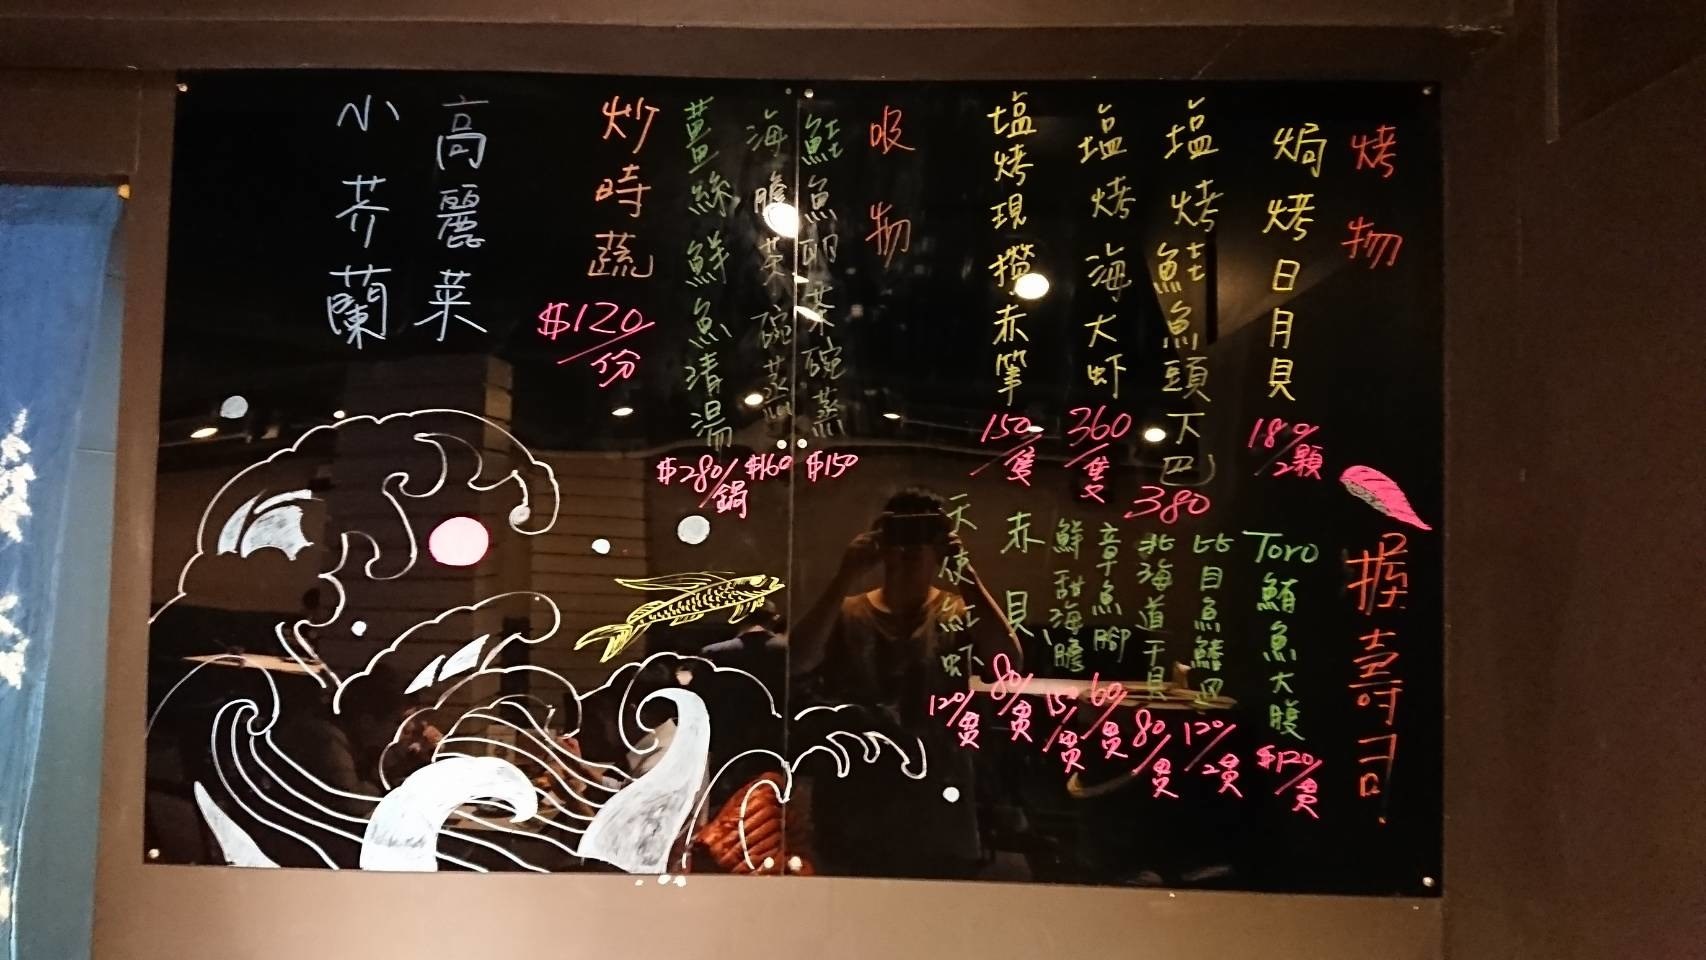 烤物
焗烤日月貝
180/2顆
塩烤鮭魚頭下巴
380
塩烤海大虾
360/隻
塩烤現撈赤筆
150/隻
吸物
鮭魚卵茶碗蒸
$150
海膽茶碗蒸
$160
薑絲鮮魚清湯
$280/鍋
炒時蔬
$120/份
高麗菜
小芥蘭
握壽司
Toro鮪魚大腹
$120/貫
比目魚鰭邊
120/2貫
北海道干貝
80/貫
章魚腳
60/貫
鮮甜海膽
150/貫
赤貝
80/貫
天使紅虾
120/貫